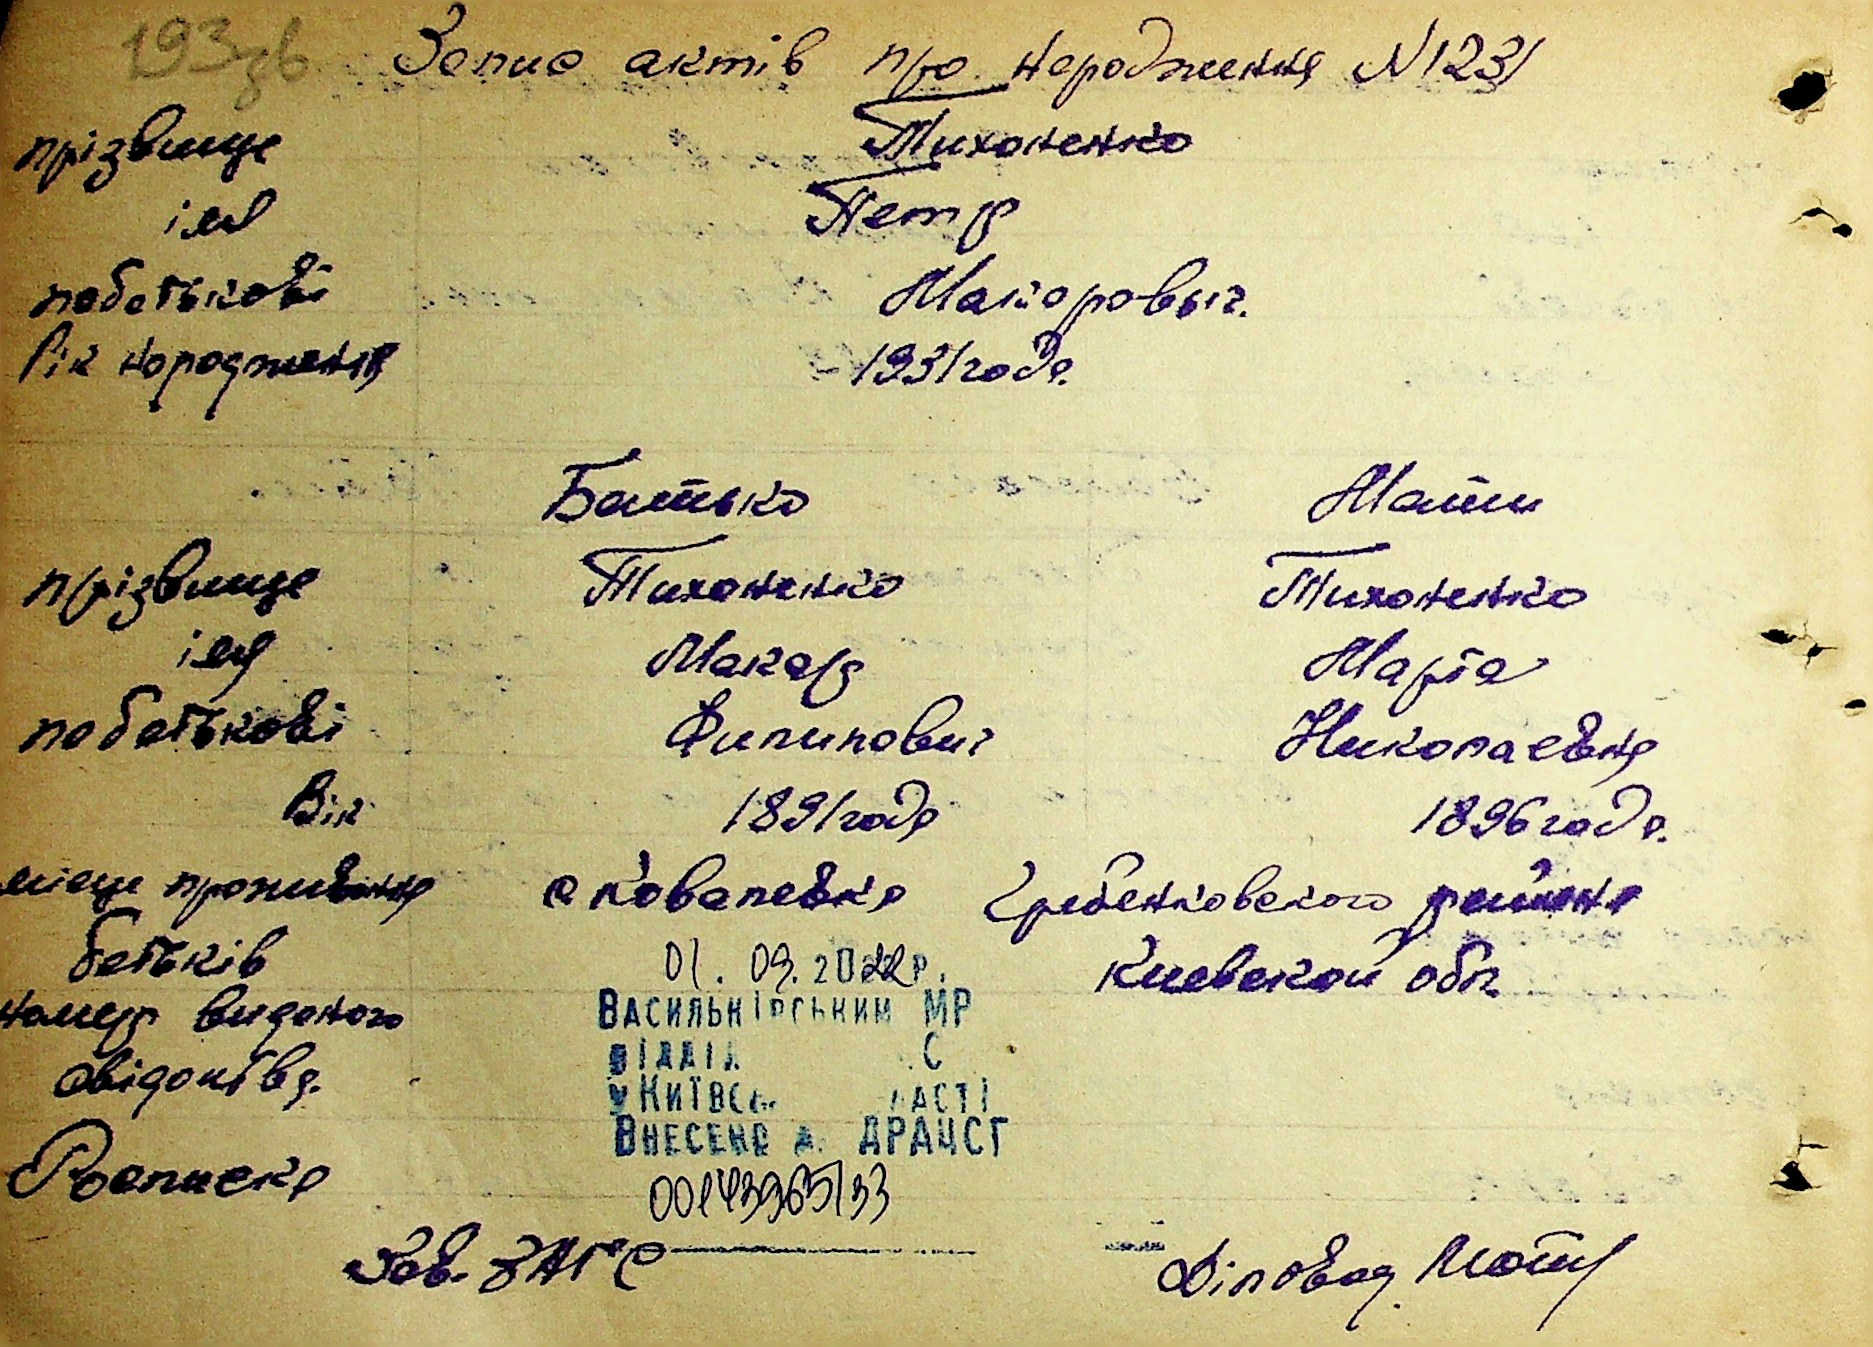 193зв Запис актів про народження N1231
прізвище Тихоненко
імя Петр
побатькові Макарович.
Рік народження 1931 года.
Батько Мати
прізвище Тихоненко Тихоненко
імя Макар Марія
побатькові Филипович Николаевна
Вік 1891 года 1896 года.
місце проживання с Ковалевка Гребенковского района
батьків Киевской обл.
01. 09. 2022р.
номер виданого
Васильківським МР
відділ С
свідоцтва.
у Київс ласті
Внесено д ДРАЦСГ
Росписка
00143965133
Зав. ЗАГС Діловод.